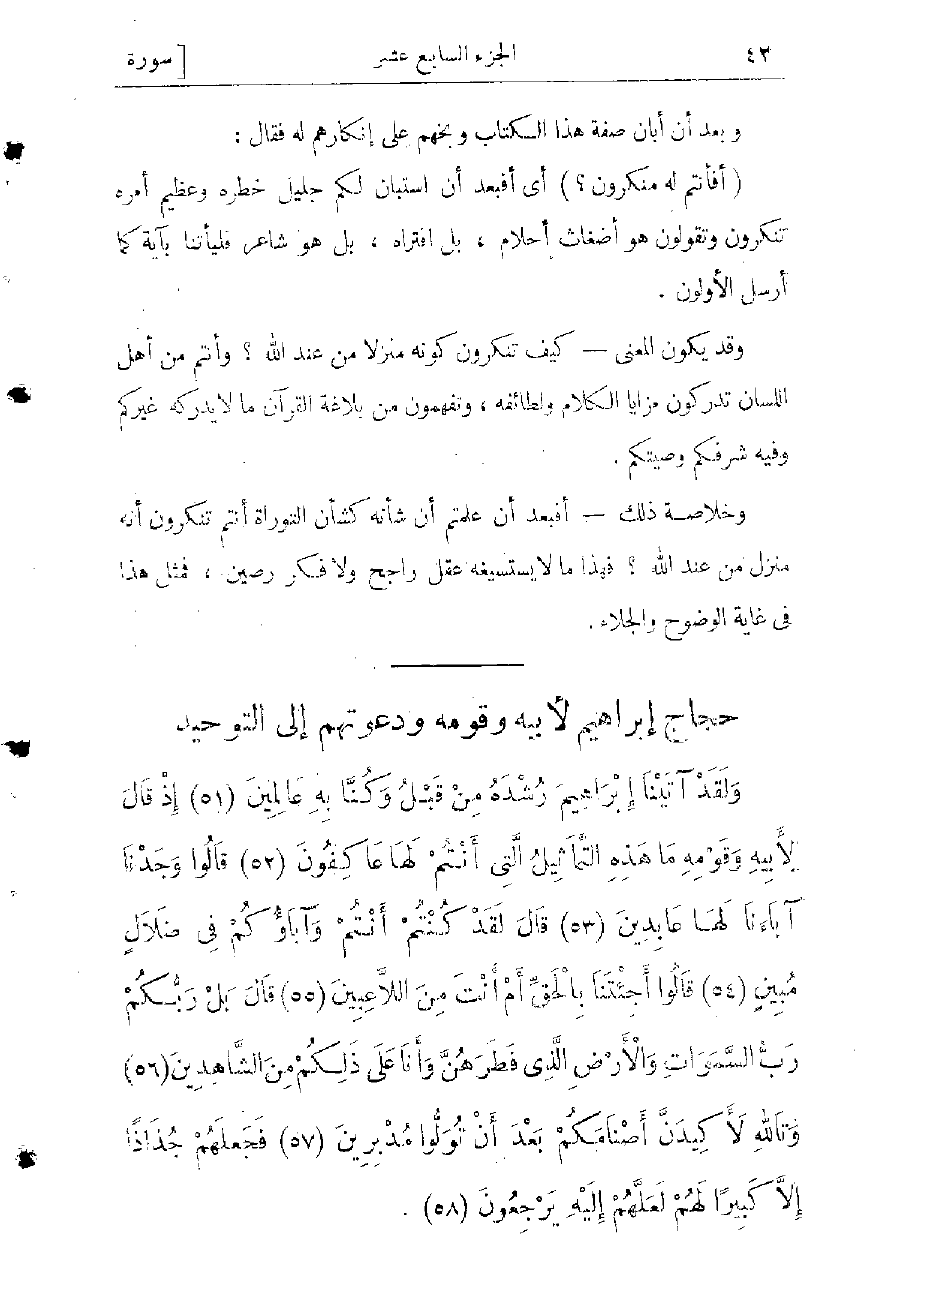 ٤٣ الجزء السابع عشر [ سورة
وبعد أن أبان صفة هذا الكتاب وبخهم على إنكارهم له فقال :
( أفأنتم له منكرون ؟ ) أى أفبعد أن استبان لكم جليل خطره وعظيم أمره
تنكرون وتقولون هو أضغاث أحلام ، بل افتراه ، بل هو شاعر فليأتنا بآية كما
أرسل الأولون .
وقد يكون المعنى — كيف تنكرون كونه منزلا من عند الله ؟ وأنتم من أهل
اللسان تدركون مزايا الكلام ولطائفه ، وتفهمون من بلاغة القرآن ما لا يدركه غيركم
وفيه شرفكم وصيتكم .
وخلاصة ذلك — أفبعد أن علمتم أن شأنه كشأن التوراة أنتم تنكرون أنه
منزل من عند الله ؟ فهذا ما لا يستسيغه عقل راجح ولا فكر رصين ، فمثل هذا
فى غاية الوضوح والجلاء .
حجاج إبراهيم لأبيه وقومه ودعوتهم إلى التوحيد
وَلَقَدْ آتَيْنَا إِبْرَاهِيمَ رُشْدَهُ مِنْ قَبْلُ وَكُنَّا بِهِ عَالِمِينَ (٥١) إِذْ قَالَ
لِأَبِيهِ وَقَوْمِهِ مَا هَذِهِ التَّمَاثِيلُ الَّتِى أَنْتُمْ لَهَا عَاكِفُونَ (٥٢) قَالُوا وَجَدْنَا
آبَاءَنَا لَهَا عَابِدِينَ (٥٣) قَالَ لَقَدْ كُنْتُمْ أَنْتُمْ وَآبَاؤُكُمْ فِى ضَلَالٍ
مُبِينٍ (٥٤) قَالُوا أَجِئْتَنَا بِالْحَقِّ أَمْ أَنْتَ مِنَ اللَّاعِبِينَ (٥٥) قَالَ بَلْ رَبُّكُمْ
رَبُّ السَّمَوَاتِ وَالْأَرْضِ الَّذِى فَطَرَهُنَّ وَأَنَا عَلَى ذَلِكُمْ مِنَ الشَّاهِدِينَ (٥٦)
وَتَاللهِ لَأَكِيدَنَّ أَصْنَامَكُمْ بَعْدَ أَنْ تُوَلُّوا مُدْبِرِينَ (٥٧) فَجَعَلَهُمْ جُذَاذًا
إِلاَّ كَبِيرًا لَهُمْ لَعَلَّهُمْ إِلَيْهِ يَرْجِعُونَ (٥٨) .